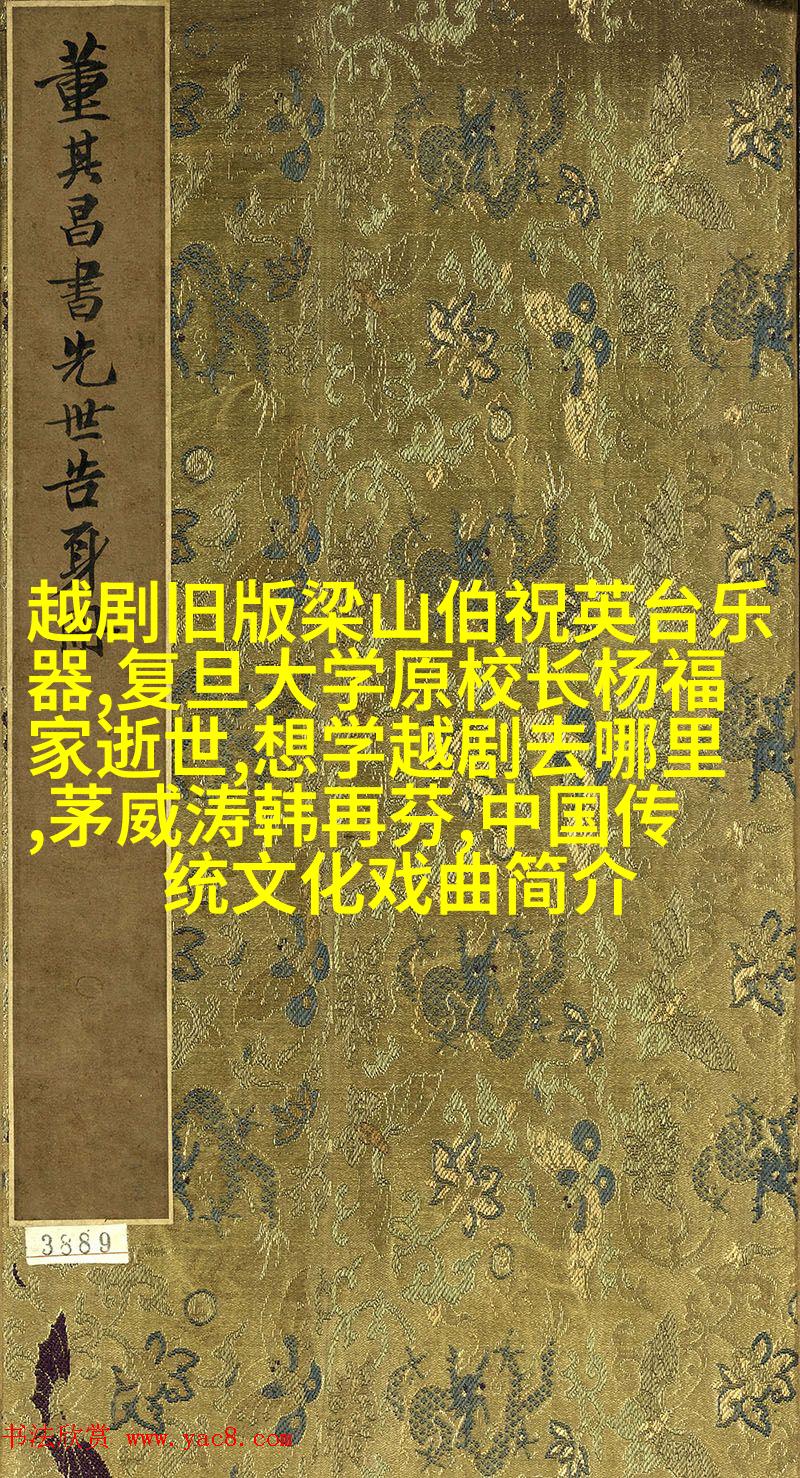 董其昌書先世告身
越剧旧版梁山伯祝英台乐
器,复旦大学原校长杨福
家逝世,想学越剧去哪里
,茅威涛韩再芬,中国传
统文化戏曲简介
3889
书法欣赏 www.yac8.com